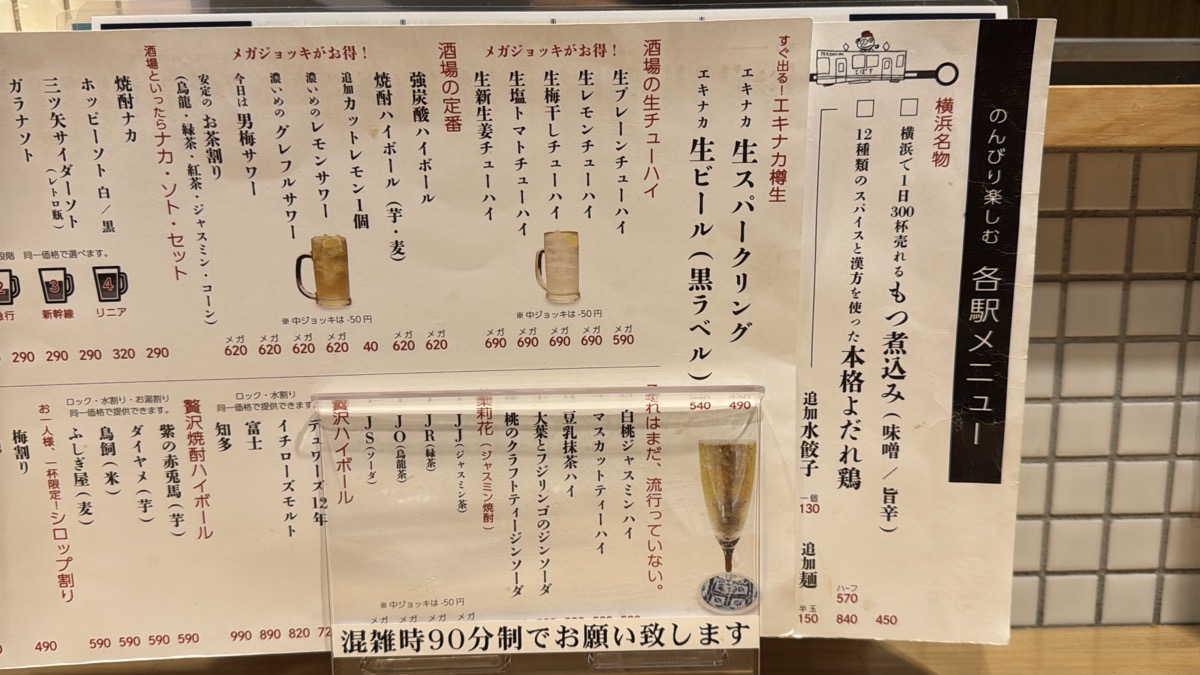 のんびり楽しむ 各駅メニュー
横浜名物
□ 横浜で1日300杯売れる もつ煮込み（味噌／旨辛）
450
□ 12種類のスパイスと漢方を使った 本格よだれ鶏
ハーフ
570
840
追加水餃子
一個
130
追加麺
半玉
150
すぐ出る！エキナカ樽生
エキナカ 生スパークリング
490
エキナカ 生ビール（黒ラベル）
540
酒場の生チューハイ
メガジョッキがお得！
生プレーンチューハイ
メガ
590
生レモンチューハイ
メガ
690
生梅干しチューハイ
メガ
690
生塩トマトチューハイ
メガ
690
生新生姜チューハイ
メガ
690
※中ジョッキは-50円
酒場の定番
メガジョッキがお得！
強炭酸ハイボール
メガ
620
焼酎ハイボール（芋・麦）
メガ
620
追加カットレモン1個
40
濃いめのレモンサワー
メガ
620
濃いめのグレフルサワー
メガ
620
今日は男梅サワー
メガ
620
安定のお茶割り
（烏龍・緑茶・紅茶・ジャスミン・コーン）
メガ
620
※中ジョッキは-50円
酒場といったらナカ・ソト・セット
焼酎ナカ
290
ホッピーソト 白／黒
320
三ツ矢サイダーソト
（レトロ瓶）
290
ガラナソト
290
290
段階 同一価格で選べます。
3
新幹線
4
リニア
れはまだ、流行っていない。
白桃ジャスミンハイ
マスカットティーハイ
豆乳抹茶ハイ
大葉とフジリンゴのジンソーダ
桃のクラフトティージンソーダ
茉莉花（ジャスミン焼酎）
JJ（ジャスミン茶）
JR（緑茶）
JO（烏龍茶）
JS（ソーダ）
※中ジョッキは-50円
メガ メガ メガ メガ
贅沢ハイボール
ロック・水割り
同一価格で提供できます
デュワーズ12年
イチローズモルト
820
富士
890
知多
990
贅沢焼酎ハイボール
ロック・水割り・お湯割り
同一価格で提供できます。
紫の赤兎馬（芋）
590
ダイヤメ（芋）
590
鳥飼（米）
590
ふしぎ屋（麦）
590
お一人様、一杯限定！シロップ割り
梅割り
490
混雑時90分制でお願い致します